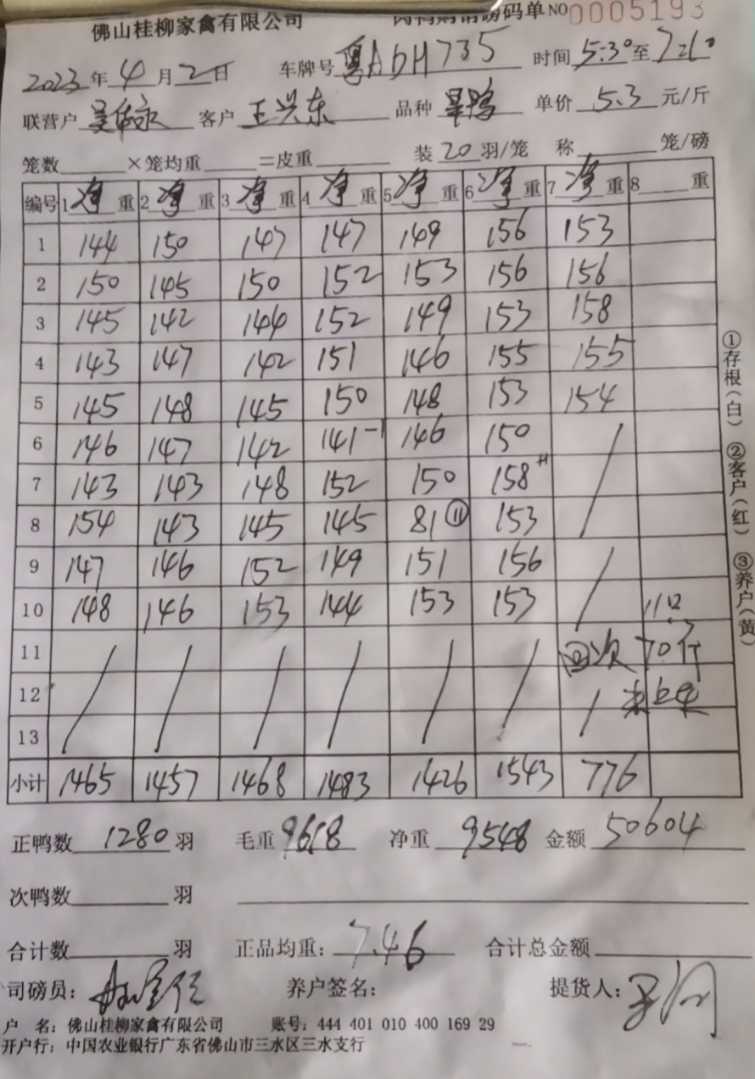 佛山桂柳家禽有限公司 肉鸭购销磅码单 NO 0005193
2023年4月2日 车牌号 粤A 时间 5:30至
联营户 客户 王兴东 品种 单价 5.3 元/斤
笼数 ×笼均重 =皮重 装20羽/笼 称 笼/磅
编号 1净重 2净重 3净重 4净重 5净重 6净重 7净重 8 重
1 144 150 147 147 149 156 153
2 150 145 150 152 153 156 156
3 145 142 144 152 149 153 158
4 143 147 142 151 146 155 155
5 145 148 145 150 148 153 154
6 146 147 142 141-1 146 150
7 143 143 148 152 150 158
8 154 143 145 145 81⑪ 153
9 147 146 152 149 151 156
10 148 146 153 144 153 153
11 回次 70斤
12
13
小计 1465 1457 1468 1483 1426 1543 776
正鸭数 1280 羽 毛重 9618 净重 9548 金额 50604
次鸭数 羽
合计数 羽 正品均重: 7.46 合计总金额
司磅员: 养户签名: 提货人:
户 名: 佛山桂柳家禽有限公司 账号: 444 401 010 400 169 29
开户行: 中国农业银行广东省佛山市三水区三水支行
①存根(白) ②客户(红) ③养户(黄)